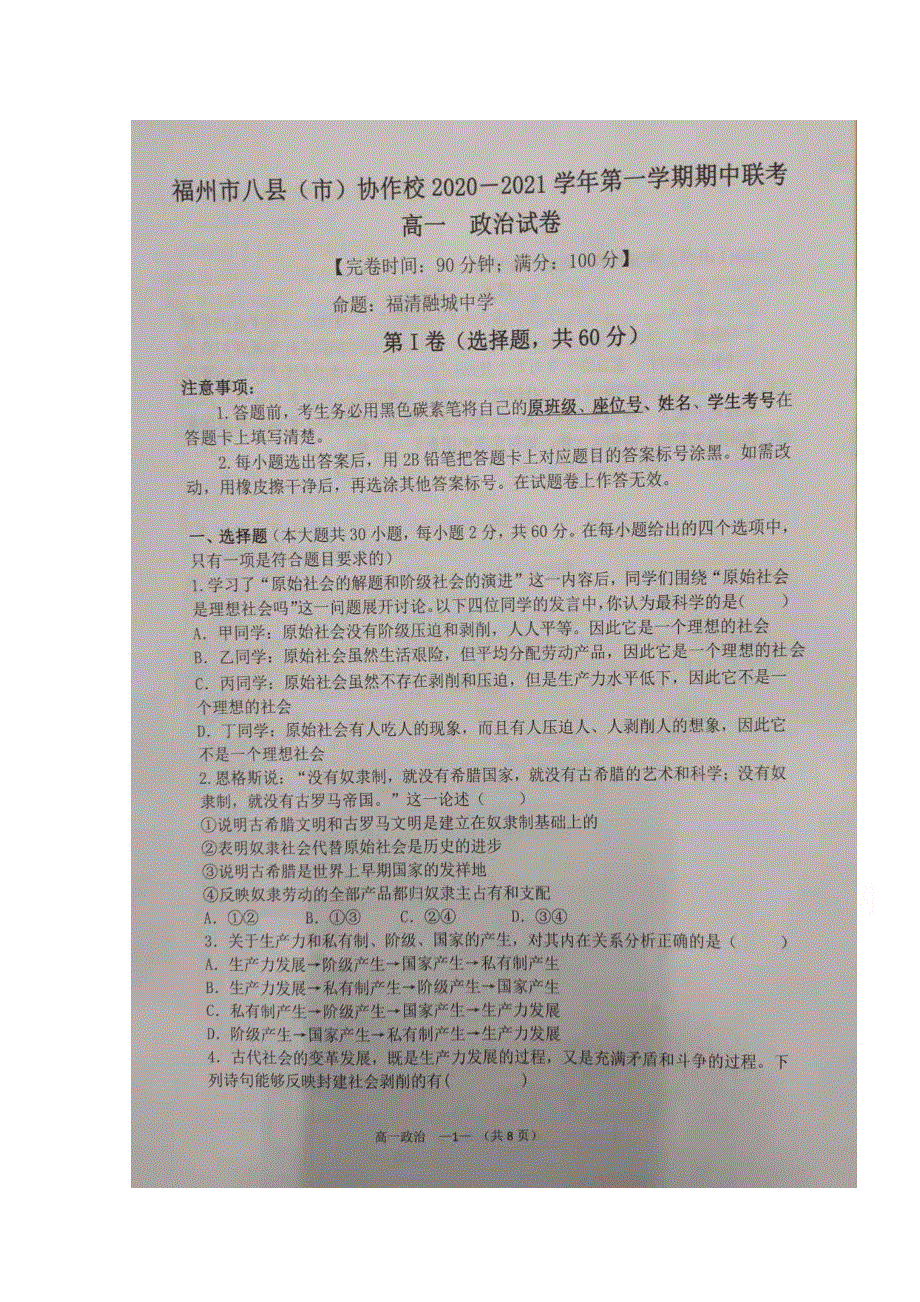 福州市八县（市）协作校2020－2021学年第一学期期中联考
高一　政治试卷
【完卷时间：90分钟；满分：100分】
命题：福清融城中学
第Ⅰ卷（选择题，共60分）
注意事项：
1.答题前，考生务必用黑色碳素笔将自己的原班级、座位号、姓名、学生考号在
答题卡上填写清楚。
2.每小题选出答案后，用2B铅笔把答题卡上对应题目的答案标号涂黑。如需改
动，用橡皮擦干净后，再选涂其他答案标号。在试题卷上作答无效。
一、选择题（本大题共30小题，每小题2分，共60分。在每小题给出的四个选项中，
只有一项是符合题目要求的）
1.学习了“原始社会的解题和阶级社会的演进”这一内容后，同学们围绕“原始社会
是理想社会吗”这一问题展开讨论。以下四位同学的发言中，你认为最科学的是(　　)
A．甲同学：原始社会没有阶级压迫和剥削，人人平等。因此它是一个理想的社会
B．乙同学：原始社会虽然生活艰险，但平均分配劳动产品，因此它是一个理想的社会
C．丙同学：原始社会虽然不存在剥削和压迫，但是生产力水平低下，因此它不是一
个理想的社会
D．丁同学：原始社会有人吃人的现象，而且有人压迫人、人剥削人的想象，因此它
不是一个理想社会
2.恩格斯说：“没有奴隶制，就没有希腊国家，就没有古希腊的艺术和科学；没有奴
隶制，就没有古罗马帝国。”这一论述（　　）
①说明古希腊文明和古罗马文明是建立在奴隶制基础上的
②表明奴隶社会代替原始社会是历史的进步
③说明古希腊是世界上早期国家的发祥地
④反映奴隶劳动的全部产品都归奴隶主占有和支配
A．①②　　B．①③　　C．②④　　D．③④
3．关于生产力和私有制、阶级、国家的产生，对其内在关系分析正确的是（　　）
A．生产力发展→阶级产生→国家产生→私有制产生
B．生产力发展→私有制产生→阶级产生→国家产生
C．私有制产生→阶级产生→国家产生→生产力发展
D．阶级产生→国家产生→私有制产生→生产力发展
4．古代社会的变革发展，既是生产力发展的过程，又是充满矛盾和斗争的过程。下
列诗句能够反映封建社会剥削的有(　　)
高一政治　—1—　（共8页）